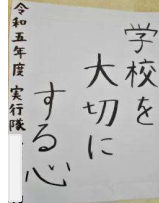 学校を
大切に
する心
令和五年度 実行隊